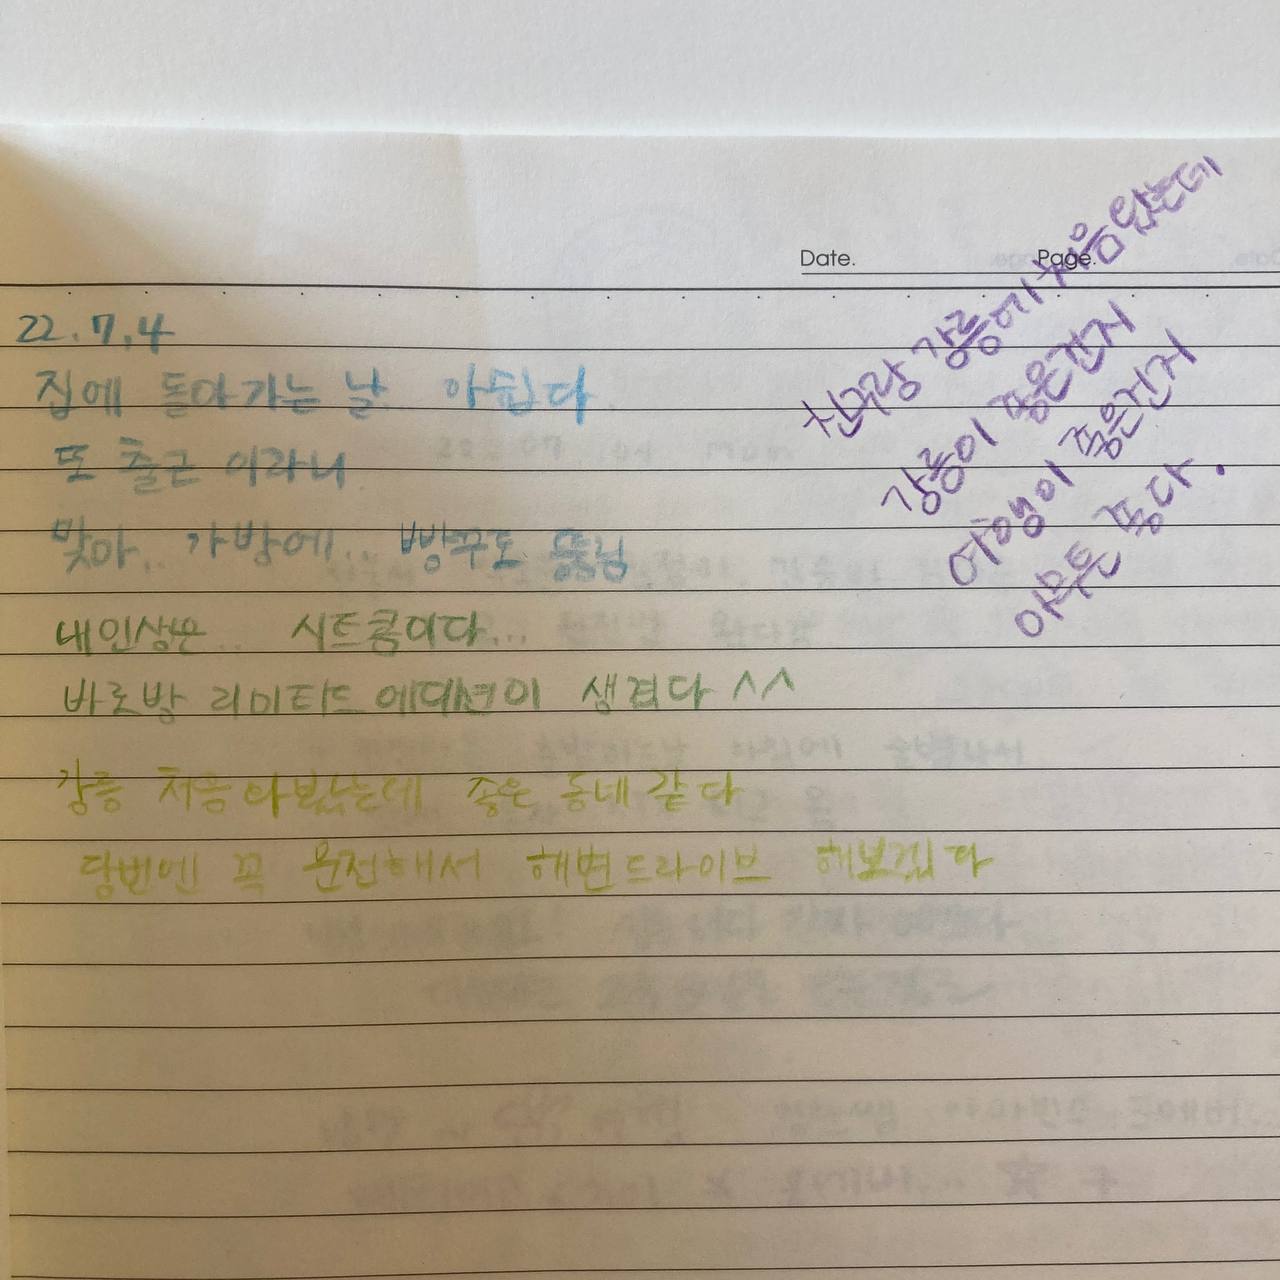 Date. Page.
친구랑 강릉에 처음 왔는데
강릉이 좋은건지
여행이 좋은건지
아무튼 좋다.
22.7.4
집에 돌아가는 날 아쉽다
또 출근이라니
맞아.. 가방에.. 빵꾸도 뚫림
내인생은.. 시트콤이다..
바로방 리미티드에디션이 생겼다 ^^
강릉 처음와봤는데 좋은 동네같다
담번엔 꼭 운전해서 해변드라이브 해보겠다